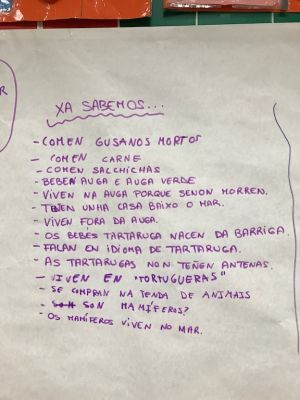 R
XA SABEMOS...
- COMEN GUSANOS MORTOS
- COMEN CARNE
- COMEN SALCHICHAS
- BEBEN AUGA E AUGA VERDE
- VIVEN NA AUGA PORQUE SENON MORREN.
- TEÑEN UNHA CASA BAIXO O MAR.
- VIVEN FORA DA AUGA.
- OS BEBÉS TARTARUGA NACEN DA BARRIGA.
- FALAN EN IDIOMA DE TARTARUGA.
- AS TARTARUGAS NON TEÑEN ANTENAS.
- VIVEN EN "TORTUGUERAS"
- SE COMPRAN NA TENDA DE ANIMAIS
- SON MAMÍFEROS?
- OS MAMÍFEROS VIVEN NO MAR.